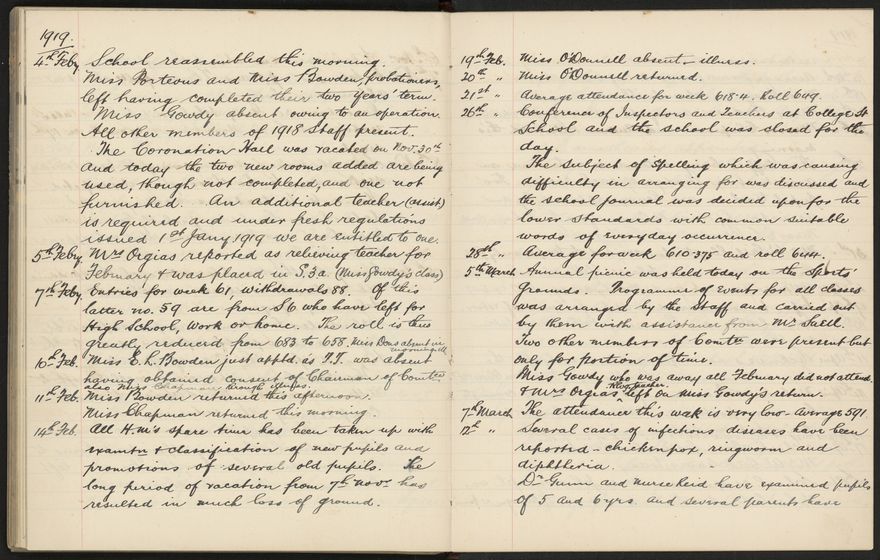 1919.
4th Feby School reassembled this morning.
Miss Porteous and Miss Bowden, probationers,
left having completed their two years' term.
Miss Gowdy absent owing to an operation.
All other members of 1918 Staff present.
The Coronation Hall was vacated on Nov. 30th
and today the two new rooms added are being
used, though not completed, and one not
furnished. An additional teacher (assist)
is required and under fresh regulations
issued 1st Jany 1919 we are entitled to one.
5th Feby Mrs Orgias reported as relieving teacher for
February & was placed in S.3a. (Miss Gowdy's class)
7th Feby. Entries for week 61, withdrawals 88. Of this
latter no. 59 are from S6 who have left for
High School, work or home. The roll is thus
greatly reduced from 683 to 656. Miss Dons absent in
morning, ill
10th Feb. Miss E. L. Bowden just apptd. as P.T. was absent
having obtained consent of Chairman of Comtee
also Miss Chapman through illness.
11th Feb. Miss Bowden returned this afternoon.
Miss Chapman returned this morning.
14th Feb. All H.M's spare time has been taken up with
examtn & classification of new pupils and
promotions of several old pupils. The
long period of vacation from 7th Novr has
resulted in much loss of ground.
19th Feb. Miss O'Donnell absent – illness.
20th " Miss O'Donnell returned.
21st " Average attendance for week 618.4. Roll 649.
26th " Conference of Inspectors and Teachers at College St
School and the school was closed for the
day.
The subject of Spelling which was causing
difficulty in arranging for was discussed and
the school journal was decided upon for the
lower standards with common suitable
words of everyday occurrence.
28th " Average for week 610.375 and roll 644.
5th March Annual picnic was held today on the Sports'
Grounds. Programme of events for all classes
was arranged by the Staff and carried out
by them with assistance from Mr
Two other members of Comtee were present but
only for portion of time.
Miss Gowdy who was away all February did not attend
Relvg. teacher.
& Mrs Orgias left on Miss Gowdy's return.
7th March The attendance this week is very low – average 591
12th " Several cases of infectious diseases have been
reported – chicken pox, ringworm and
diphtheria.
Dr Gunn and nurse Reid have examined pupils
of 5 and 6 yrs. and several parents have